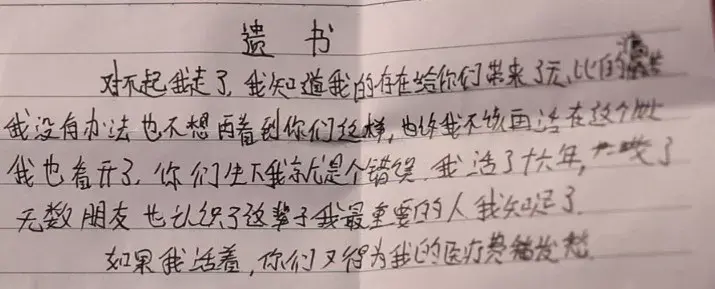 遗书
对不起我走了,我知道我的存在给你们带来了无比的痛苦
我没有办法也不想再看到你们这样,也许我不该再活在这个世
我也看开了,你们生下我就是个错误,我活了十六年,交了
无数朋友也认识了这辈子我最重要的人我知足了.
如果我活着,你们又得为我的医疗费稍发愁.